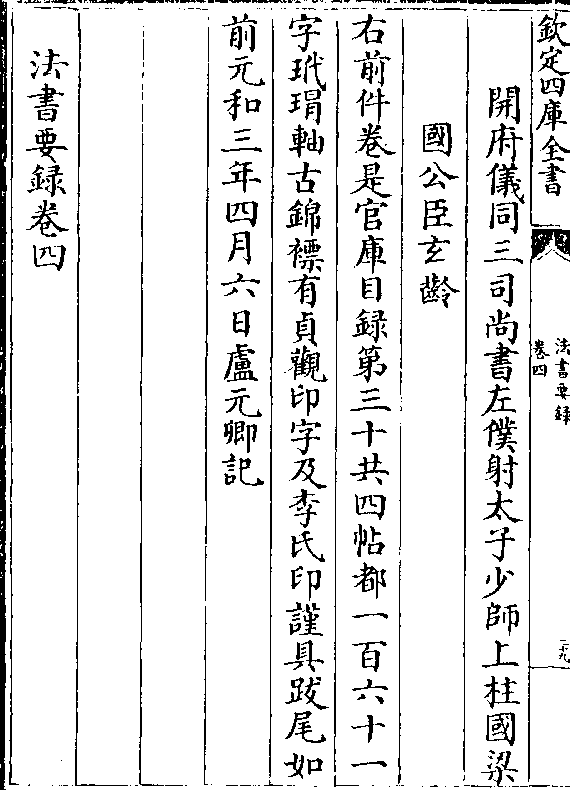 欽定四庫全書
法書要録
卷四
二十九
開府儀同三司尚書左僕射太子少師上柱國梁
國公臣玄齡
右前件卷是官庫目録第三十共四帖都一百六十一
字玳瑁軸古錦褾有貞觀印字及李氏印謹具跋尾如
前元和三年四月六日盧元卿記
法書要録卷四